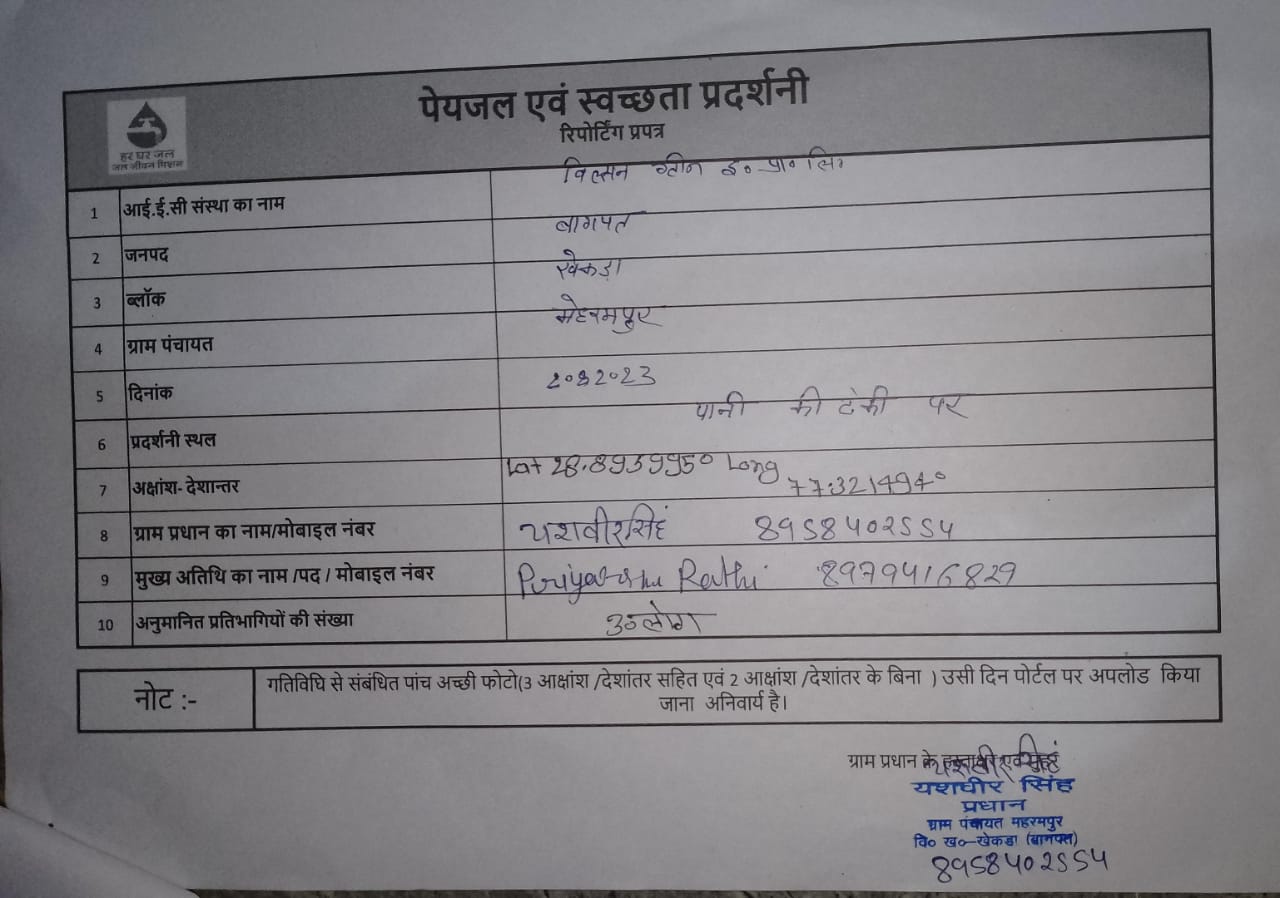 हर घर जल
जल जीवन मिशन
पेयजल एवं स्वच्छता प्रदर्शनी
रिपोर्टिंग प्रपत्र
1 आई.ई.सी संस्था का नाम विल्सन ग्रीन इ० प्रा० लि०
2 जनपद बागपत
3 ब्लॉक खेकड़ा
4 ग्राम पंचायत
5 दिनांक
6 प्रदर्शनी स्थल पानी की टंकी पर
7 अक्षांश- देशान्तर Lat 28.8939950 Long
77.3214940
8 ग्राम प्रधान का नाम/मोबाइल नंबर यशवीर सिंह 8958402554
9 मुख्य अतिथि का नाम /पद / मोबाइल नंबर Rathi 8979416829
10 अनुमानित प्रतिभागियों की संख्या 30 लोग
नोट :-
गतिविधि से संबंधित पांच अच्छी फोटो(3 आक्षांश /देशांतर सहित एवं 2 आक्षांश /देशांतर के बिना ) उसी दिन पोर्टल पर अपलोड किया
जाना अनिवार्य है।
ग्राम प्रधान के हस्ताक्षर एवं मुहर
यशवीर सिंह
प्रधान
ग्राम पंचायत महरमपुर
वि० ख०-खेकडा (बागपत)
8958402554